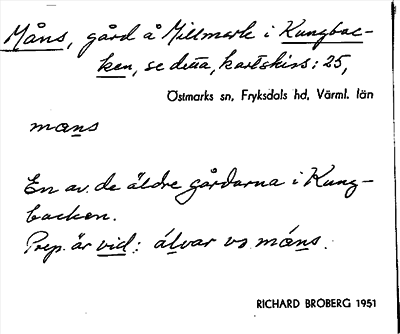 Måns, gård å Millmark i Kungbac-
ken, se detta, kartskiss: 25,
Östmarks sn, Fryksdals hd, Värml. län
mans
En av de äldre gårdarna i Kung-
backen.
Prep. är vid: álvar vs máns.
RICHARD BROBERG 1951